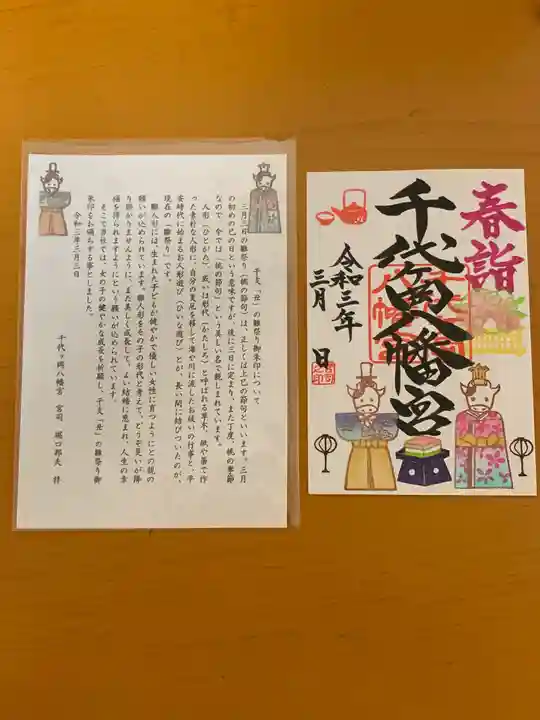 干支「丑」の雛祭り御朱印について
三月三日の雛祭り（桃の節句）は、正しくは上巳の節句といいます。三月
の初めの巳の日という意味ですが、後に三日に定まり、また丁度、桃の季節
なので、今では「桃の節句」という美しい名で親しまれています。
人形（ひとがた）、或いは形代（かたしろ）と呼ばれる草木、紙や藁で作
った素朴な人形に、自分の災厄を移して海や川に流したお祓いの行事と、平
安時代に始まるお人形遊び（ひいな遊び）とが、長い間に結びついたのが、
現在の「雛祭り」です。
雛人形には、生まれた子どもが健やかで優しい女性に育つようにとの親の
願いが込められています。雛人形をその子の形代と考えて、どうぞ災いが降
り掛かりませんように、また美しく成長してよい結婚に恵まれ、人生の幸
福を得られますようにという願いが込められています。
そこで当社では、女の子の健やかな成長を祈願し、干支「丑」の雛祭り御
朱印をお頒ちする事としました。
令和三年三月三日
千代ヶ岡八幡宮 宮司 堀口郁夫 拝
春詣
千代ヶ岡八幡宮
令和三年
三月 日